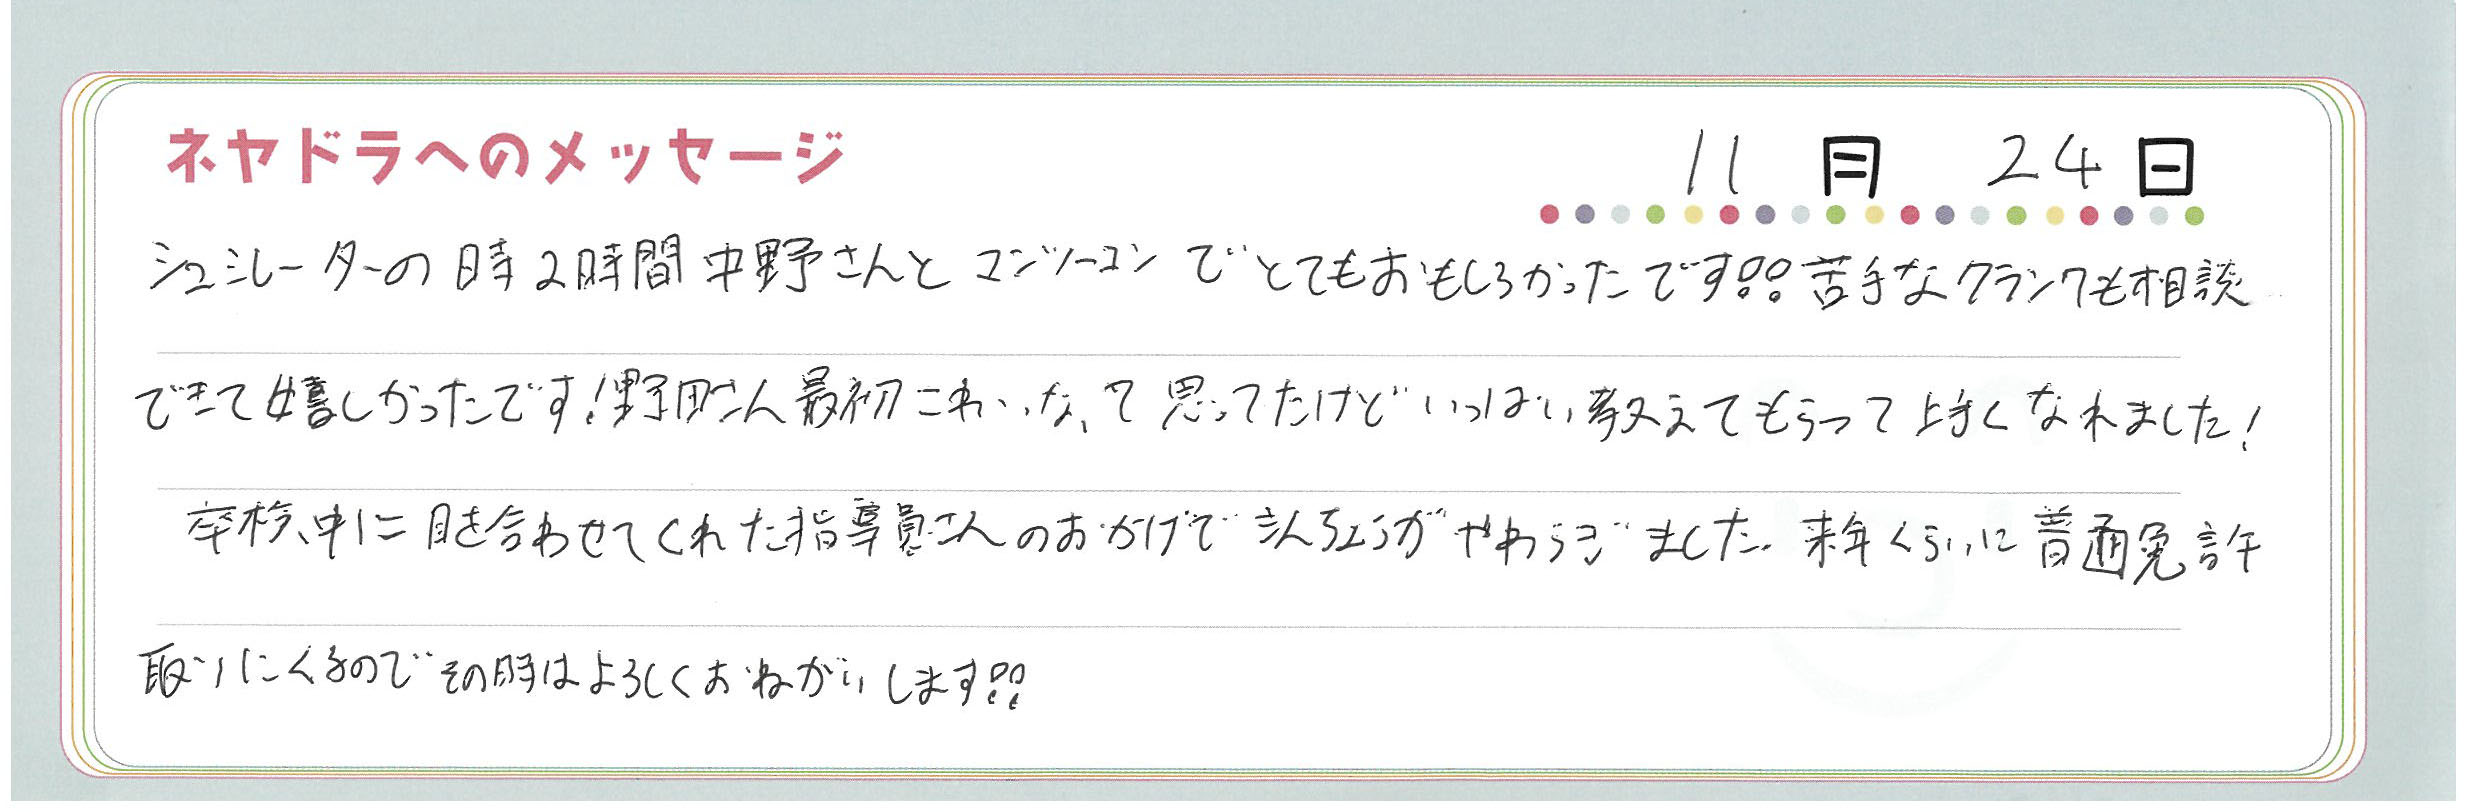 ネヤドラへのメッセージ
11月 24日
シュミレーターの時2時間中野さんとマンツーコンでとてもおもしろかったです!! 苦手なクランクも相談
できて嬉しかったです!野田さん最初こわいなって思ってたけどいっぱい教えてもらって上手くなれました!
卒検中に目を合わせてくれた指導員さんのおかげできんちょうがやわらぎました。来年くらいに普通免許
取りにくるのでその時はよろしくおねがいします!!